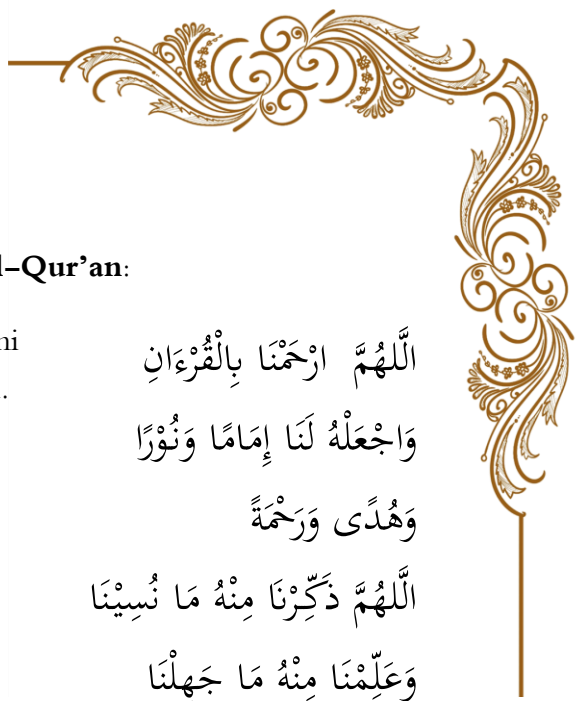 l-Qur’an:
ni
الَّلهُمَّ ارْحَمْنَا بِالْقُرْءَانِ
.
وَاجْعَلْهُ لَنَا إِمَامًا وَنُوْرًا
وَهُدًى وَرَحْمَةً
الَّلهُمَّ ذَكِّرْنَا مِنْهُ مَا نُسِيْنَا
وَعَلِّمْنَا مِنْهُ مَا جَهِلْنَا